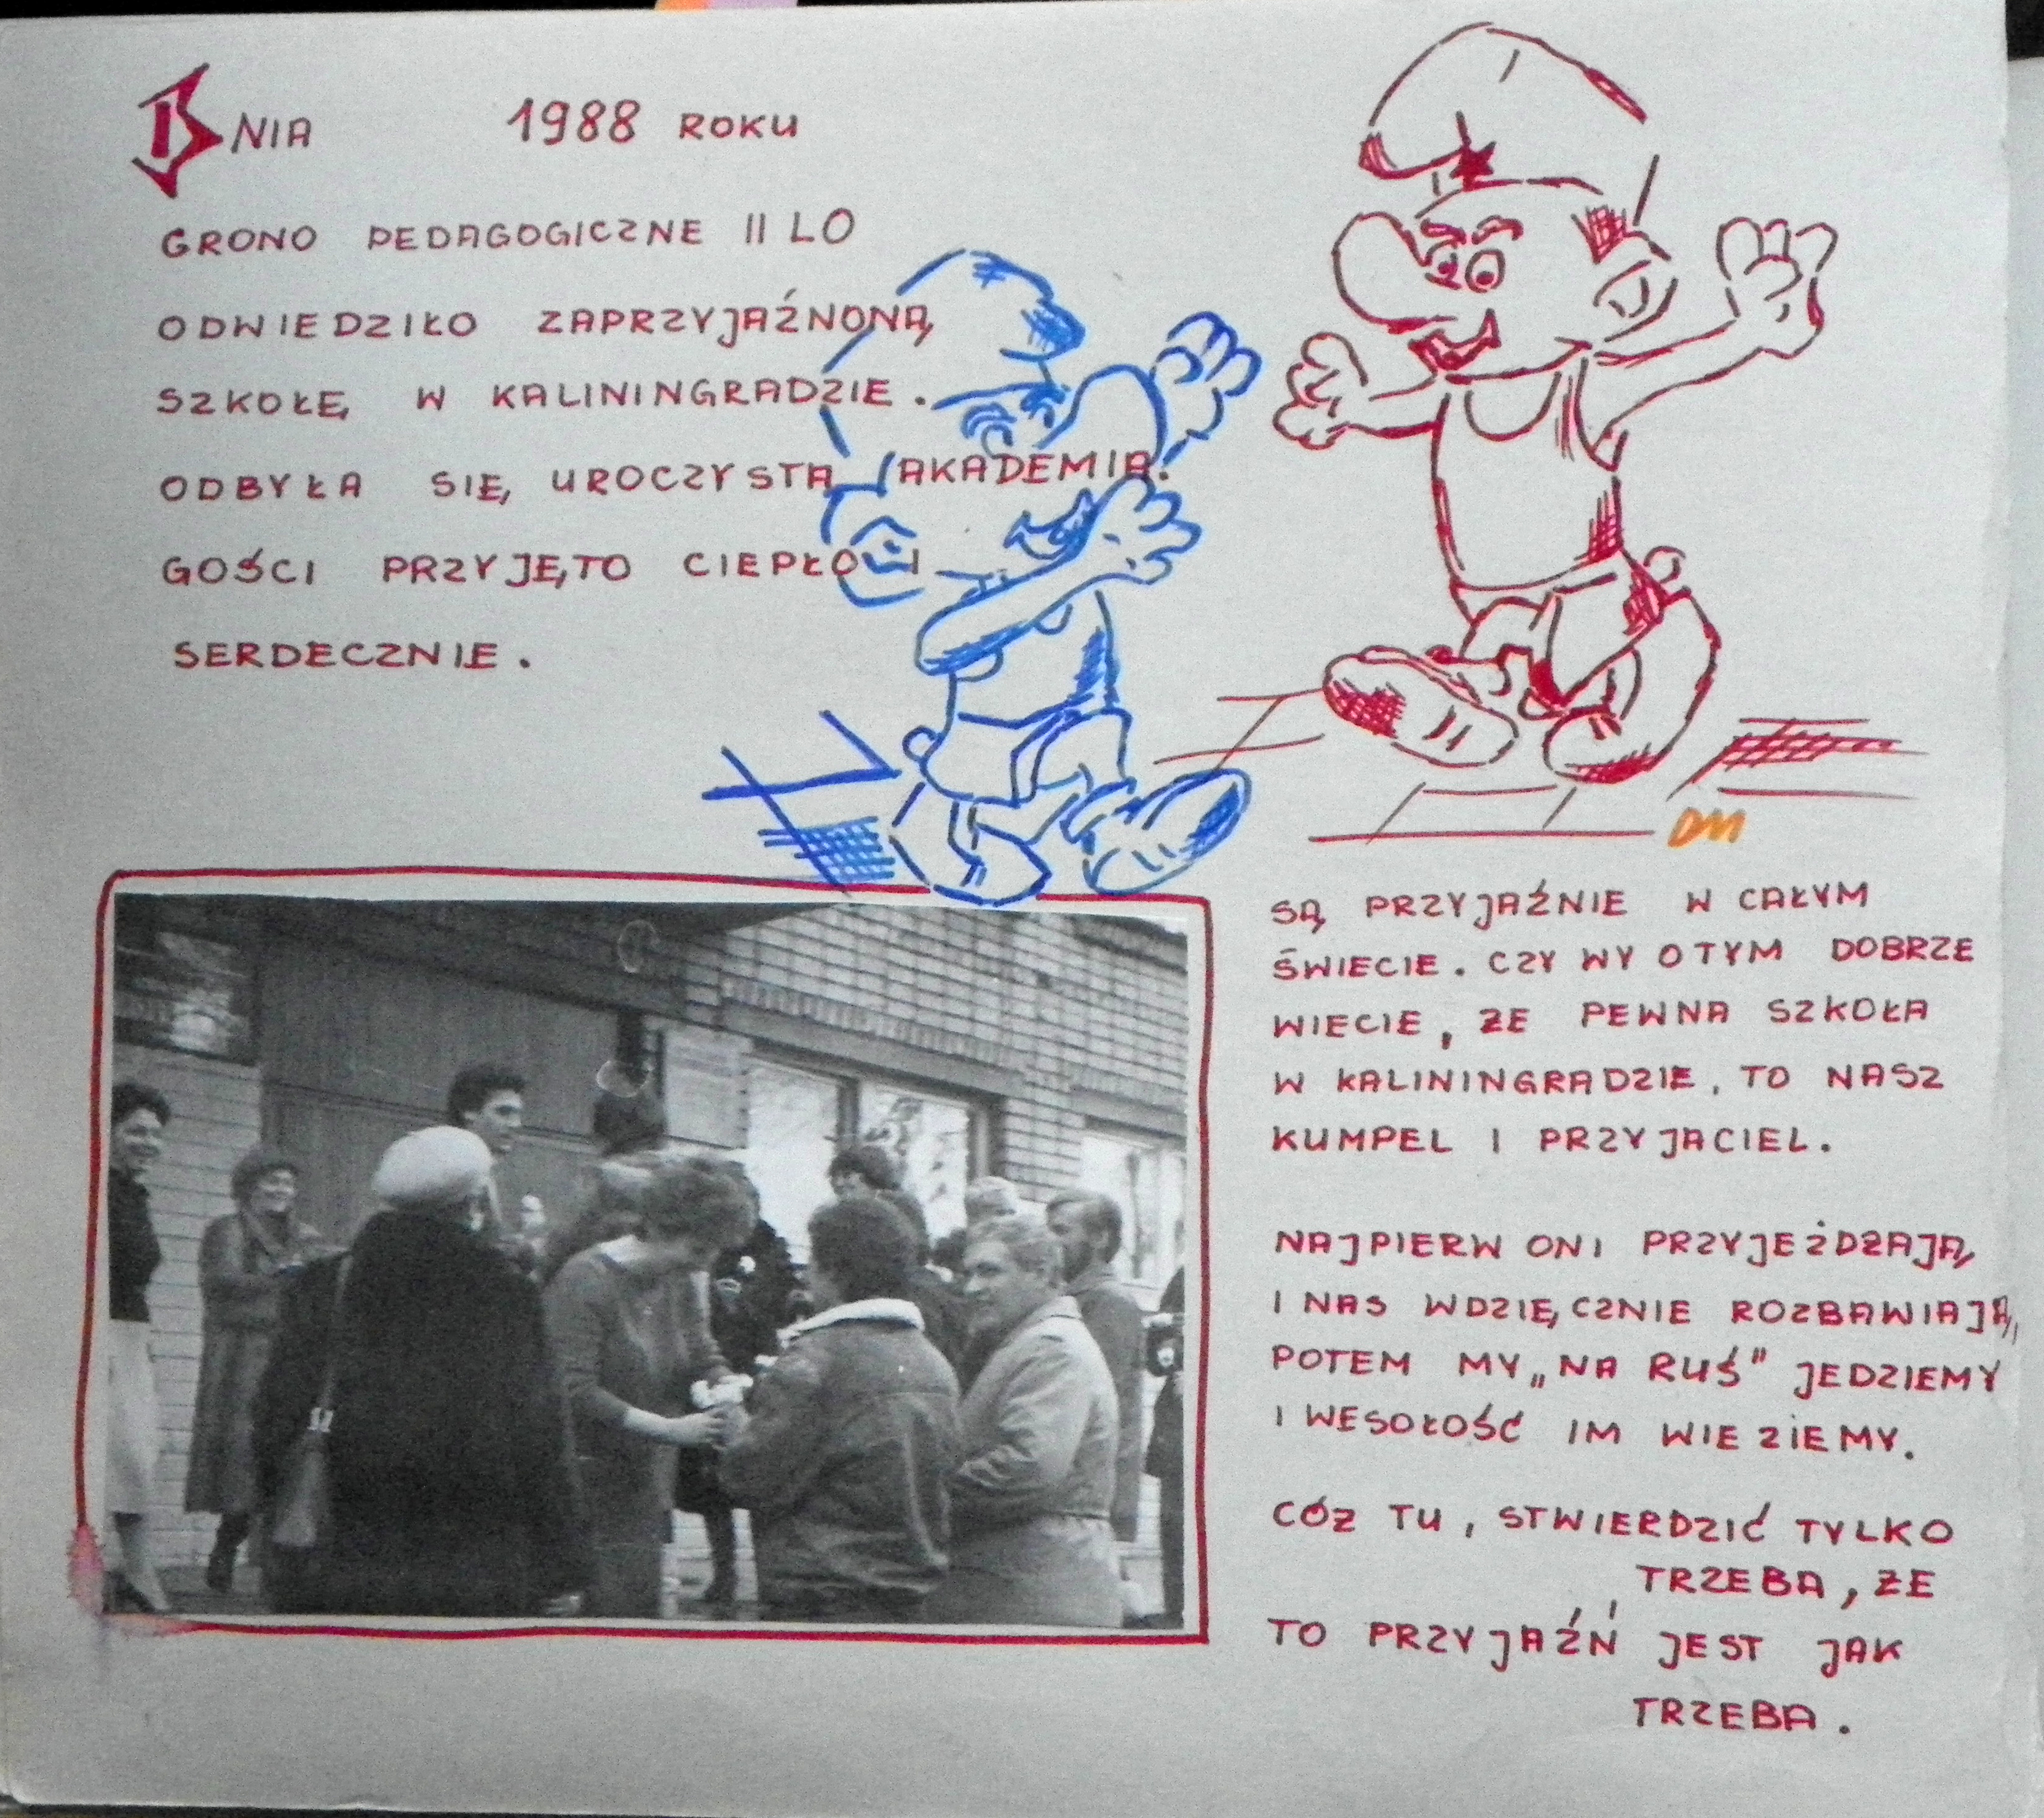 DNIA 1988 ROKU
GRONO PEDAGOGICZNE II LO
ODWIEDZIŁO ZAPRZYJAŹNONĄ
SZKOŁĘ W KALININGRADZIE.
ODBYŁA SIĘ UROCZYSTA AKADEMIA.
GOŚCI PRZYJĘTO CIEPŁO I
SERDECZNIE.
DM
SĄ PRZYJAŹNIE W CAŁYM
ŚWIECIE. CZY WY O TYM DOBRZE
WIECIE, ŻE PEWNA SZKOŁA
W KALININGRADZIE, TO NASZ
KUMPEL I PRZYJACIEL.
NAJPIERW ONI PRZYJEŻDŻAJĄ
I NAS WDZIĘCZNIE ROZBAWIAJĄ,
POTEM MY „NA RUŚ" JEDZIEMY
I WESOŁOŚĆ IM WIEZIEMY.
CÓŻ TU, STWIERDZIĆ TYLKO
TRZEBA, ŻE
TO PRZYJAŹŃ JEST JAK
TRZEBA.